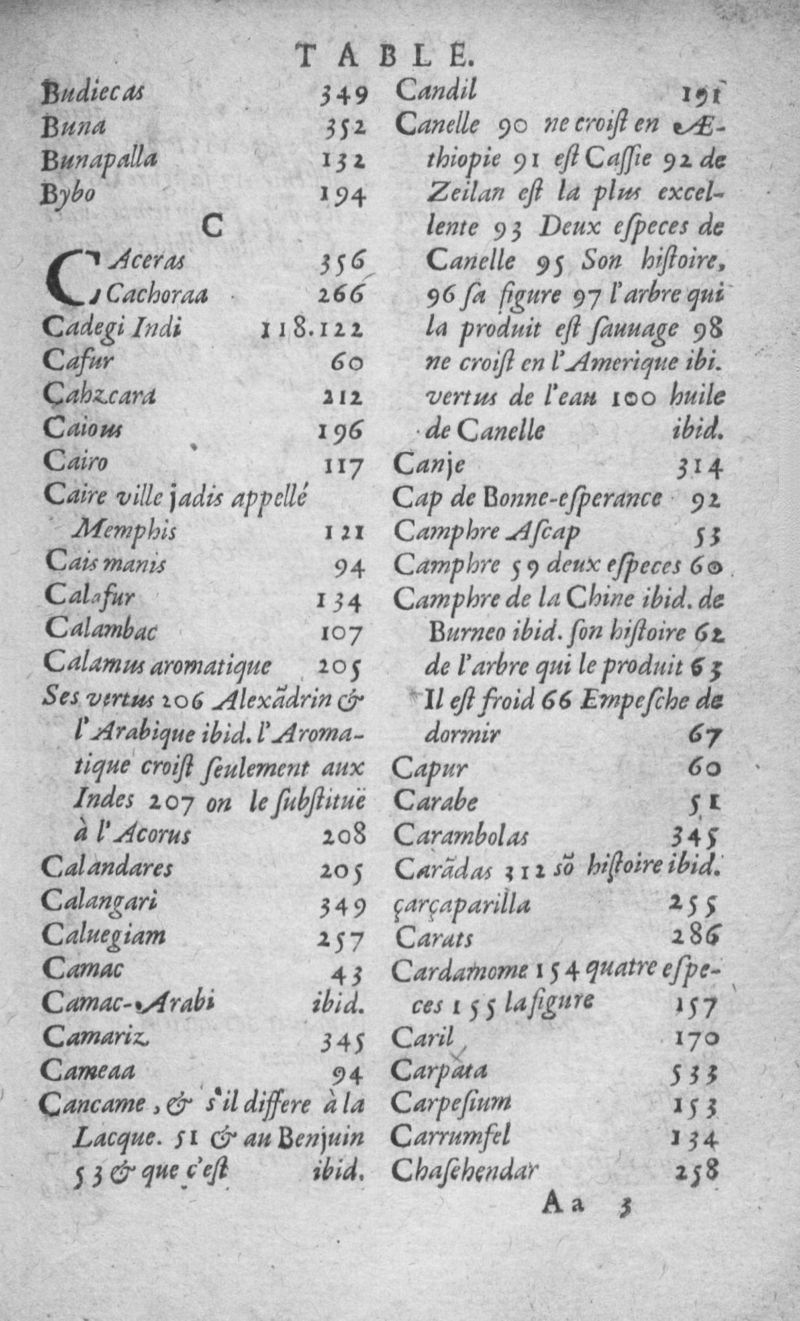 TABLE.
Budiecas 349
Buna 352
Bunapalla 132
Bybo 194
C
CAceras 356
Cachoraa 266
Cadegi Indi 118.122
Cafur 60
Cahzcara 212
Caious 196
Cairo 117
Caire ville jadis appellé
Memphis 121
Cais manis 94
Calafur 134
Calambac 107
Calamus aromatique 205
Ses vertus 206 Alexãdrin &
l'Arabique ibid. l'Aroma-
tique croiſt ſeulement aux
Indes 207 on le ſubſtituë
à l'Acorus 208
Calandares 205
Calangari 349
Caluegiam 257
Camac 43
Camac-Arabi ibid.
Camariz 345
Cameaa 94
Cancame, & s'il differe à la
Lacque. 51 & au Benjuin
53 & que c'eſt ibid.
Candil 191
Canelle 90 ne croiſt en Æ-
thiopie 91 eſt Caſſie 92 de
Zeilan eſt la plus excel-
lente 93 Deux eſpeces de
Canelle 95 Son hiſtoire,
96 ſa figure 97 l'arbre qui
la produit eſt ſauuage 98
ne croiſt en l'Amerique ibi.
vertus de l'eau 100 huile
de Canelle ibid.
Canje 314
Cap de Bonne-eſperance 92
Camphre Aſcap 53
Camphre 59 deux eſpeces 60.
Camphre de la Chine ibid. de
Burneo ibid. ſon hiſtoire 62
de l'arbre qui le produit 63
Il eſt froid 66 Empeſche de
dormir 67
Capur 60
Carabe 51
Carambolas 345
Carãdas 312 sõ hiſtoire ibid.
çarçaparilla 255
Carats 286
Cardamome 154 quatre eſpe-
ces 155 la figure 157
Caril 170
Carpata 533
Carpeſium 153
Carrumfel 134
Chaſehendar 258
Aa 3